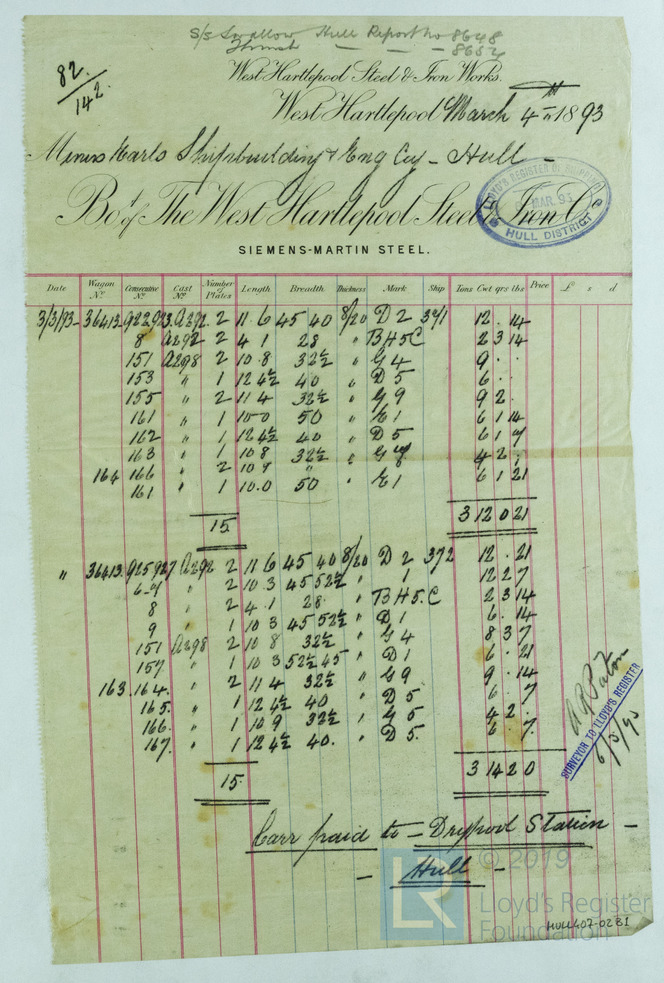 S/s Swallow Hull Report No 8648
Thrush — — — 8652
82/142
West Hartlepool Steel & Iron Works.
West Hartlepool March 4th 1893
Messrs Earls Shipbuilding & Eng Coy - Hull -
Bot of The West Hartlepool Steel & Iron Co
LLOYD'S REGISTER OF SHIPPING
MAR. 93
HULL DISTRICT
SIEMENS-MARTIN STEEL.
Date Wagon No. Consecutive No. Cast No. Number of Plates Length Breadth Thickness Mark Ship Tons Cwt qrs lbs Price £ s d
3/3/93 36413 922923 A292 2 11 6 45 40 8/20 D 2 371 12 . 14
8 A292 2 4 1 28 " BH5C 2 3 14
151 A298 2 10 8 32½ " G 4 9 . .
153 " 1 12 4½ 40 " D 5 6 . .
155 " 2 11 4 32½ " G 9 9 2 .
161 " 1 10 0 50 " E 1 6 1 14
162 " 1 12 4½ 40 " D 5 6 1 7
163 " 1 10 8 32½ " G 4 2 .
164 166 " 2 10 9 " "
161 " 1 10.0 50 " E 1 6 1 21
15 3 12 0 21
" 36413 925927 A292 2 11 6 45 40 8/20 D 2 372 12 . 21
6-7 " 2 10 3 45 52½ " 1 12 2 7
8 " 2 4 1 28 " BH5.C 2 3 14
9 " 1 10 3 45 52½ " D 1 6 . 14
151 A298 2 10 8 32½ " G 4 8 3 7
157 " 1 10 3 52½ 45 " D 1 6 . 21
163 164. " 2 11 4 32½ " G 9 9 . 14
165. " 1 12 4½ 40 " D 5 6 . 7
166. " 1 10 9 32½ " G 5 4 2 .
167. " 1 12 4½ 40. " D 5. 6 . 7.
15 3 14 2 0
A R Paton
SURVEYOR TO LLOYD'S REGISTER
6/5/93
Carr paid to - Drypool Station -
- Hull -
LR
© 2019
Lloyd's Register
Foundation
HUL407-0281